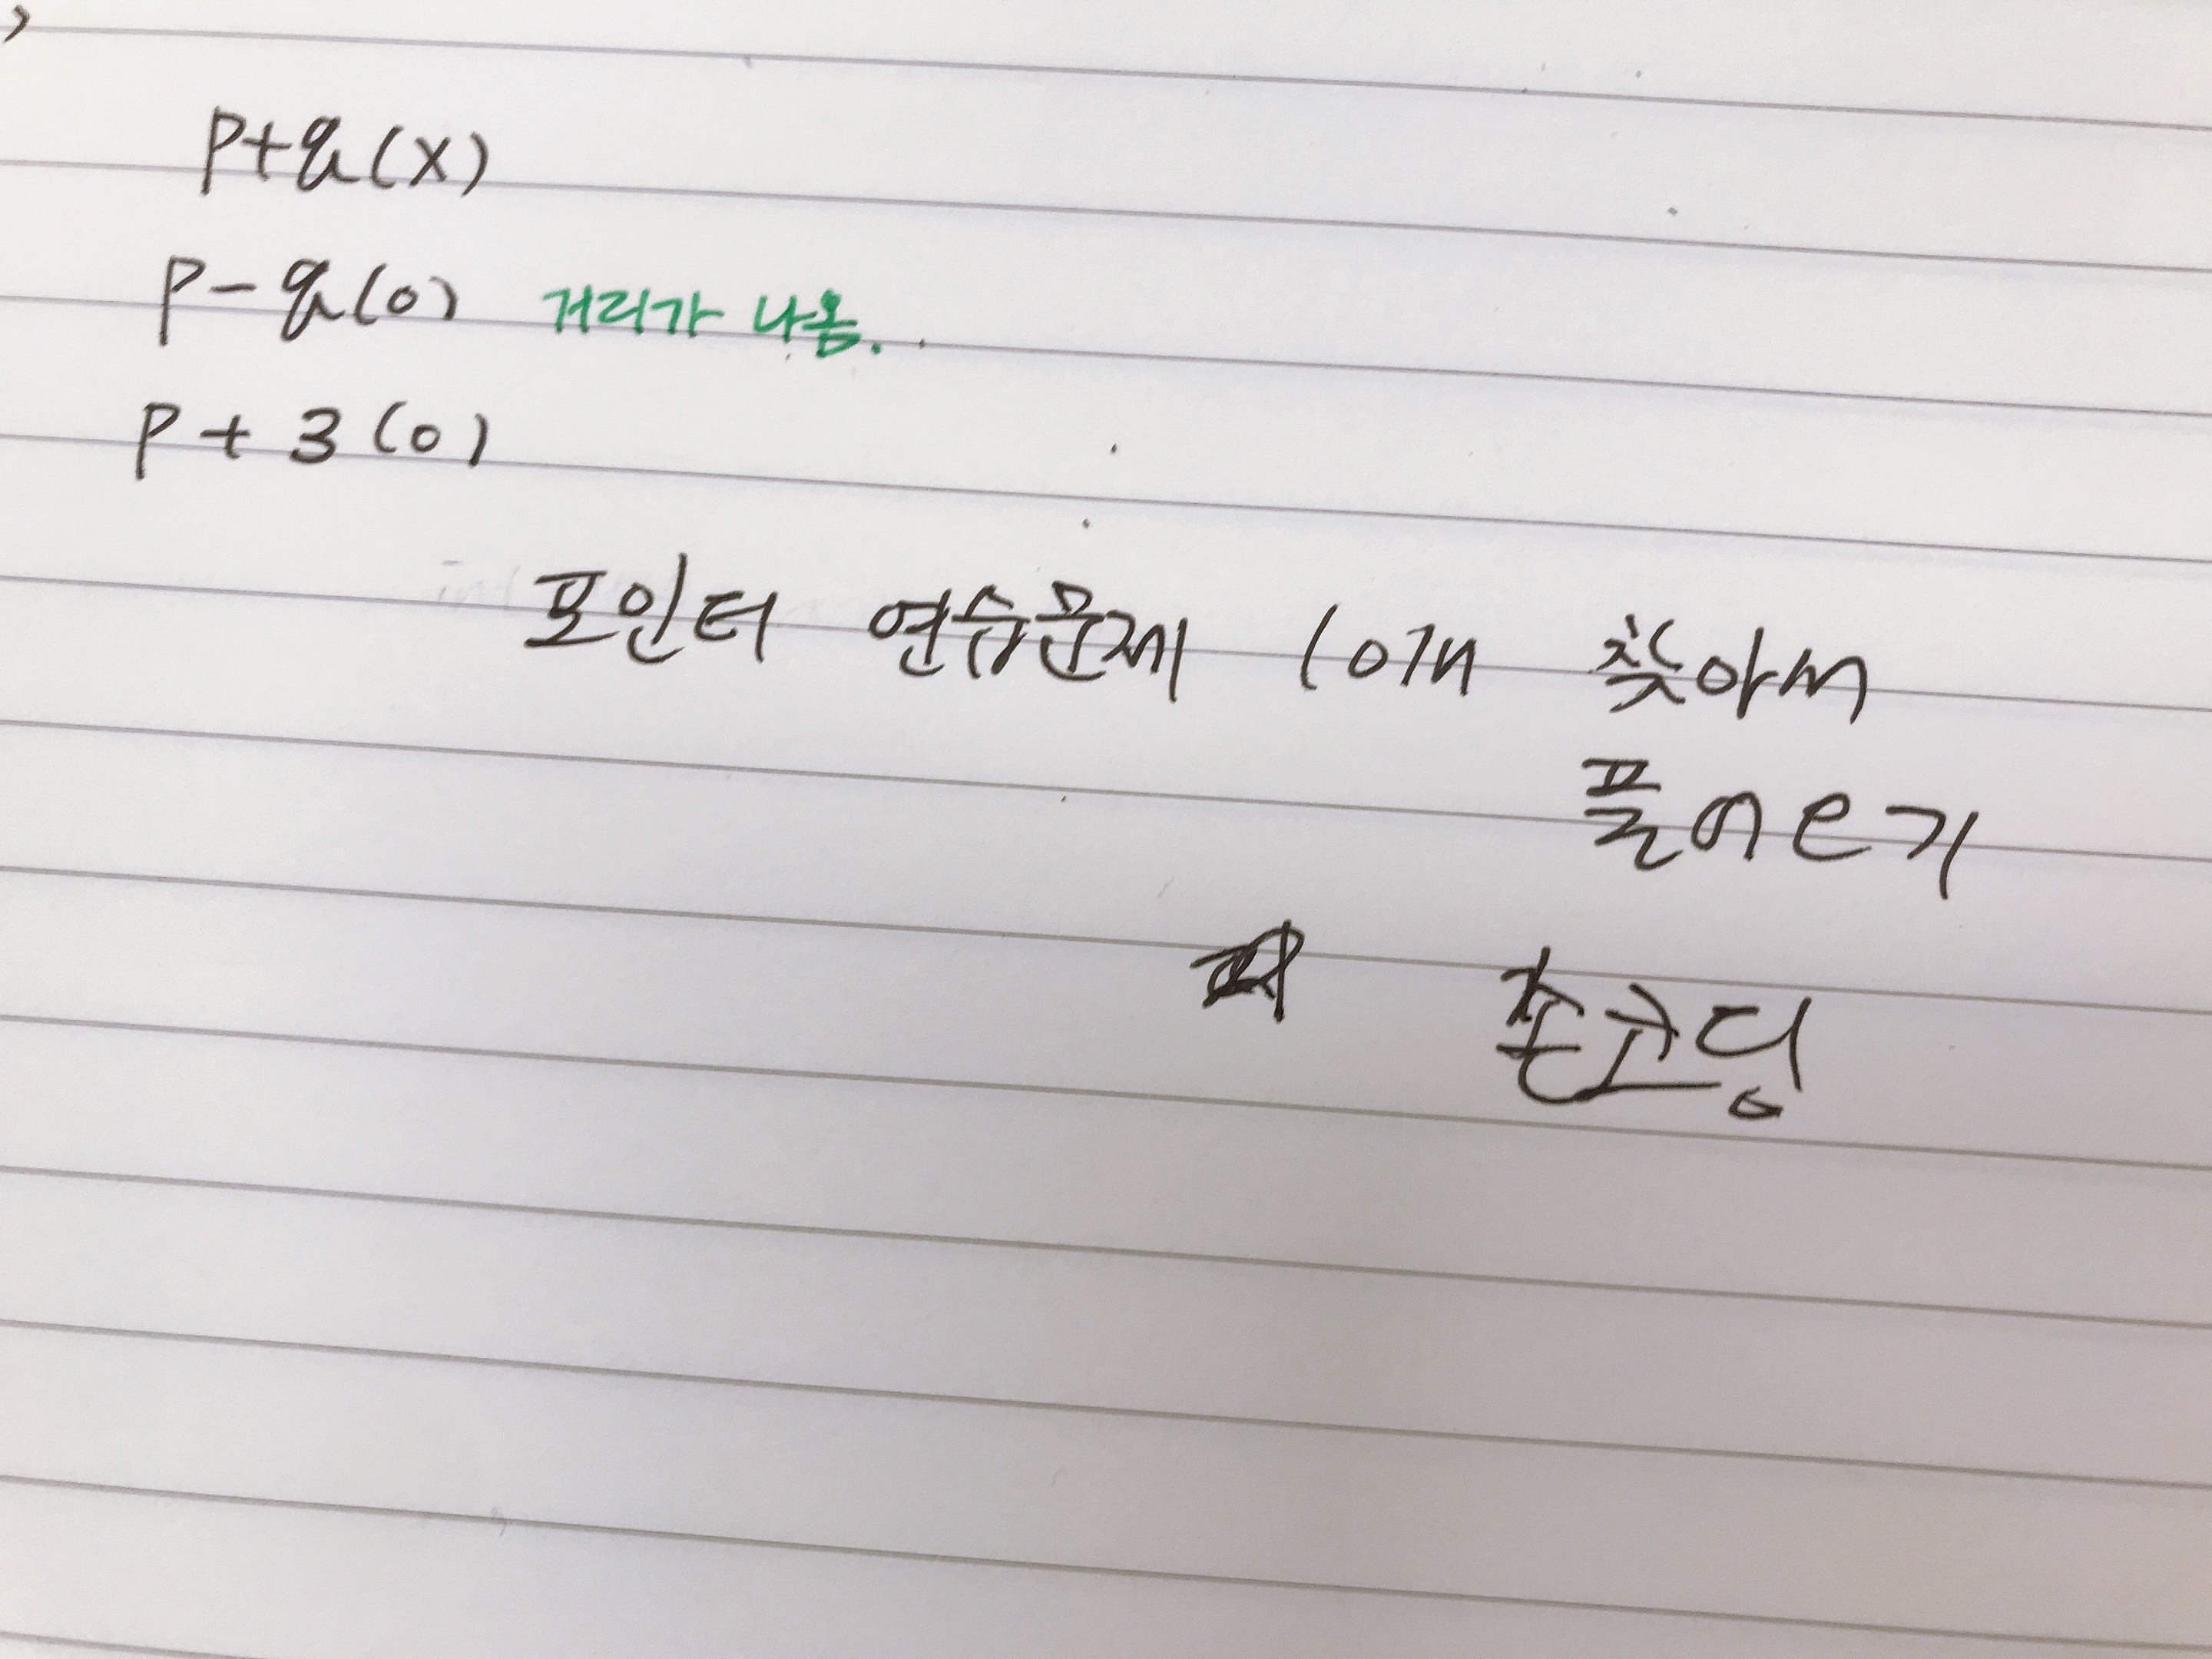 P+q(X)
P-q(0) 거리가 나옴.
P+3(0)
포인터 연습문제 10개 찾아서
풀어오기
손코딩